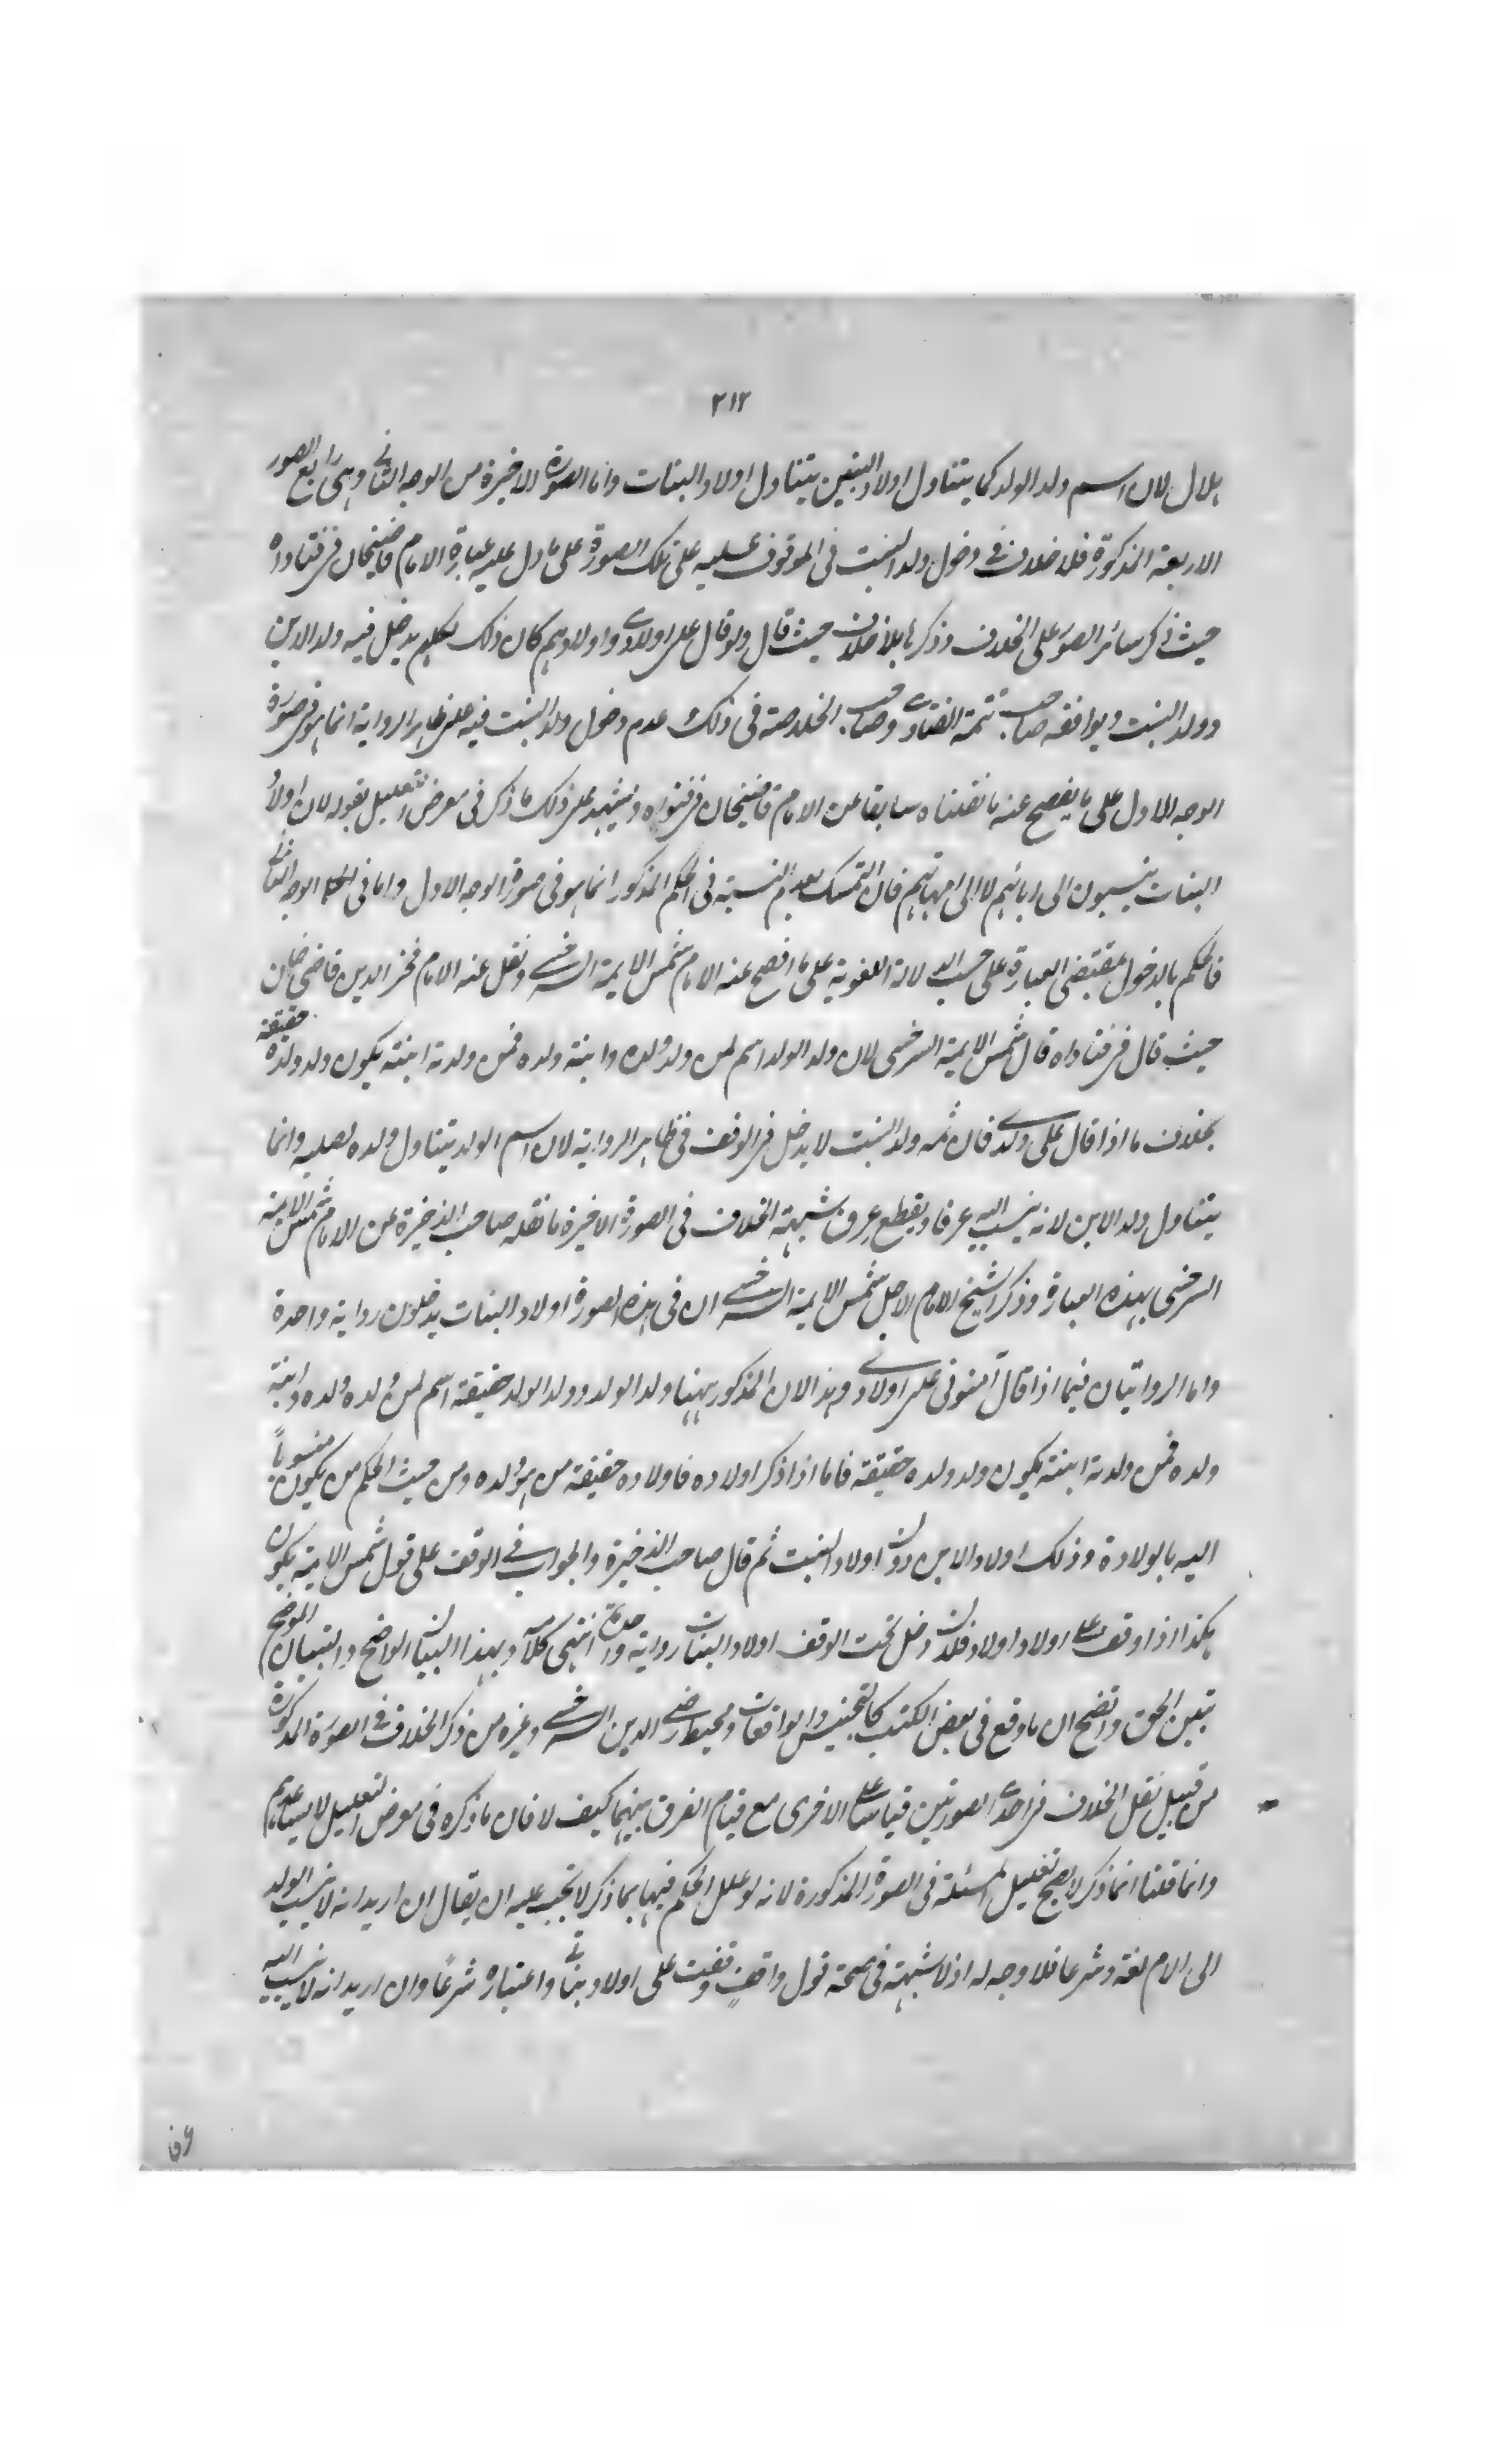 ٢١٢
هلال لان اسم ولد الولد كما يتناول اولاد البنين يتناول اولاد البنات واما الصورة الاخيرة من الوجه الثاني وهي رابع الصور
الاربعة المذكورة فلا خلاف في دخول ولد البنت في الموقوف عليه على تلك الصورة على ما دل عليه عبارة الامام قاضيخان في فتاواه
حيث ذكر سائر الصور على الخلاف وذكرها بلا خلاف حيث قال ولو قال على اولادي واولادهم كان ذلك لكلهم يدخل فيه ولد الابن
وولد البنت ويوافقه صاحب تتمة الفتاوى وصاحب الخلاصة في ذلك وعدم دخول ولد البنت فيه على ظاهر الرواية انما هو في صورة
الوجه الاول على ما يفصح عنه ما نقلناه سابقا عن الامام قاضيخان في فتواه ويشهد على ذلك ما ذكر في معرض التعليل بقوله لان اولاد
البنات ينسبون الى ابائهم لا الى امهاتهم فان التمسك بعدم النسبة في الحكم المذكور انما هو في صورة الوجه الاول واما في الوجه الثاني
فالحكم بالدخول بمقتضى العبارة على حسب الدلالة اللغوية على ما افصح عنه الامام شمس الايمة السرخسي ونقل عنه الامام فخر الدين قاضي خان
حيث قال في فتاواه قال شمس الايمة السرخسي لان ولد الولد اسم لمن ولده ولده وابنة ولده فمن ولدته ابنته يكون ولد ولده حقيقة
بخلاف ما اذا قال على ولدي فان ثمه ولد البنت لا يدخل في الوقف في ظاهر الرواية لان اسم الولد يتناول ولده لصلبه وانما
يتناول ولد الابن لانه ينسب اليه عرفا ويقطع عرق شبهة الخلاف في الصورة الاخيرة ما نقله صاحب الذخيرة عن الامام شمس الايمة
السرخسي بهذه العبارة وذكر الشيخ الامام الاجل شمس الايمة السرخسي ان في هذه الصورة اولاد البنات يدخلون رواية واحدة
واما الروايتان فيما اذا قال آمنوني على اولادي وهذا لان المذكور ههنا ولد الولد وولد الولد حقيقة اسم لمن ولده ولده وابنة
ولده فمن ولدته ابنته يكون ولد ولده حقيقة فاما اذا ذكر اولاده فاولاده حقيقة من هو ولده ومن حيث الحكم من يكون منسوباً
اليه بالولادة وذلك اولاد الابن دون اولاد البنت ثم قال صاحب الذخيرة والجواب في الوقف على قول شمس الايمة يكون
هكذا اذا وقف على اولاد اولاد فلان دخل تحت الوقف اولاد البنات رواية واحدة انتهى كلامه وبهذا البيان الواضح والتبيان الموضح
تبين الحق واتضح ان ما وقع في بعض الكتب كالتجنيس والواقعات ومحيط رضي الدين السرخسي وغيره من ذكر الخلاف في الصورة المذكورة
من قبيل نقل الخلاف في احدى الصورتين قياسا على الاخرى مع قيام الفرق بينهما كيف لا فان ما ذكره في معرض التعليل لا يساعدهم
وانما قلنا انما ذكر لا يصح تعليل المسئلة في الصورة المذكورة لانه لو علل الحكم فيها بما ذكر لا تجب عليه ان يقال ان اريد انه لا ينسب الولد
الى الام لغة وشرعا فلا وجه له اذ لا شبهة في صحة قول واقف وقفت على اولاد بناتي واعتباره شرعاً وان اريد انه لا ينسب اليه